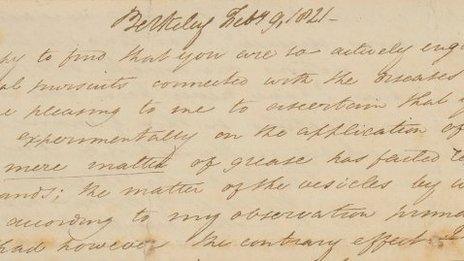 Berkeley Feby 9, 1821-
py to find that you are so actively eng
al pursuits connected with the diseases
e pleasing to me to ascertain that y
experimentally on the application of
mere matter of grease has failed to
ands; the matter of the vesicles by
according to my observation
had however the contrary effect